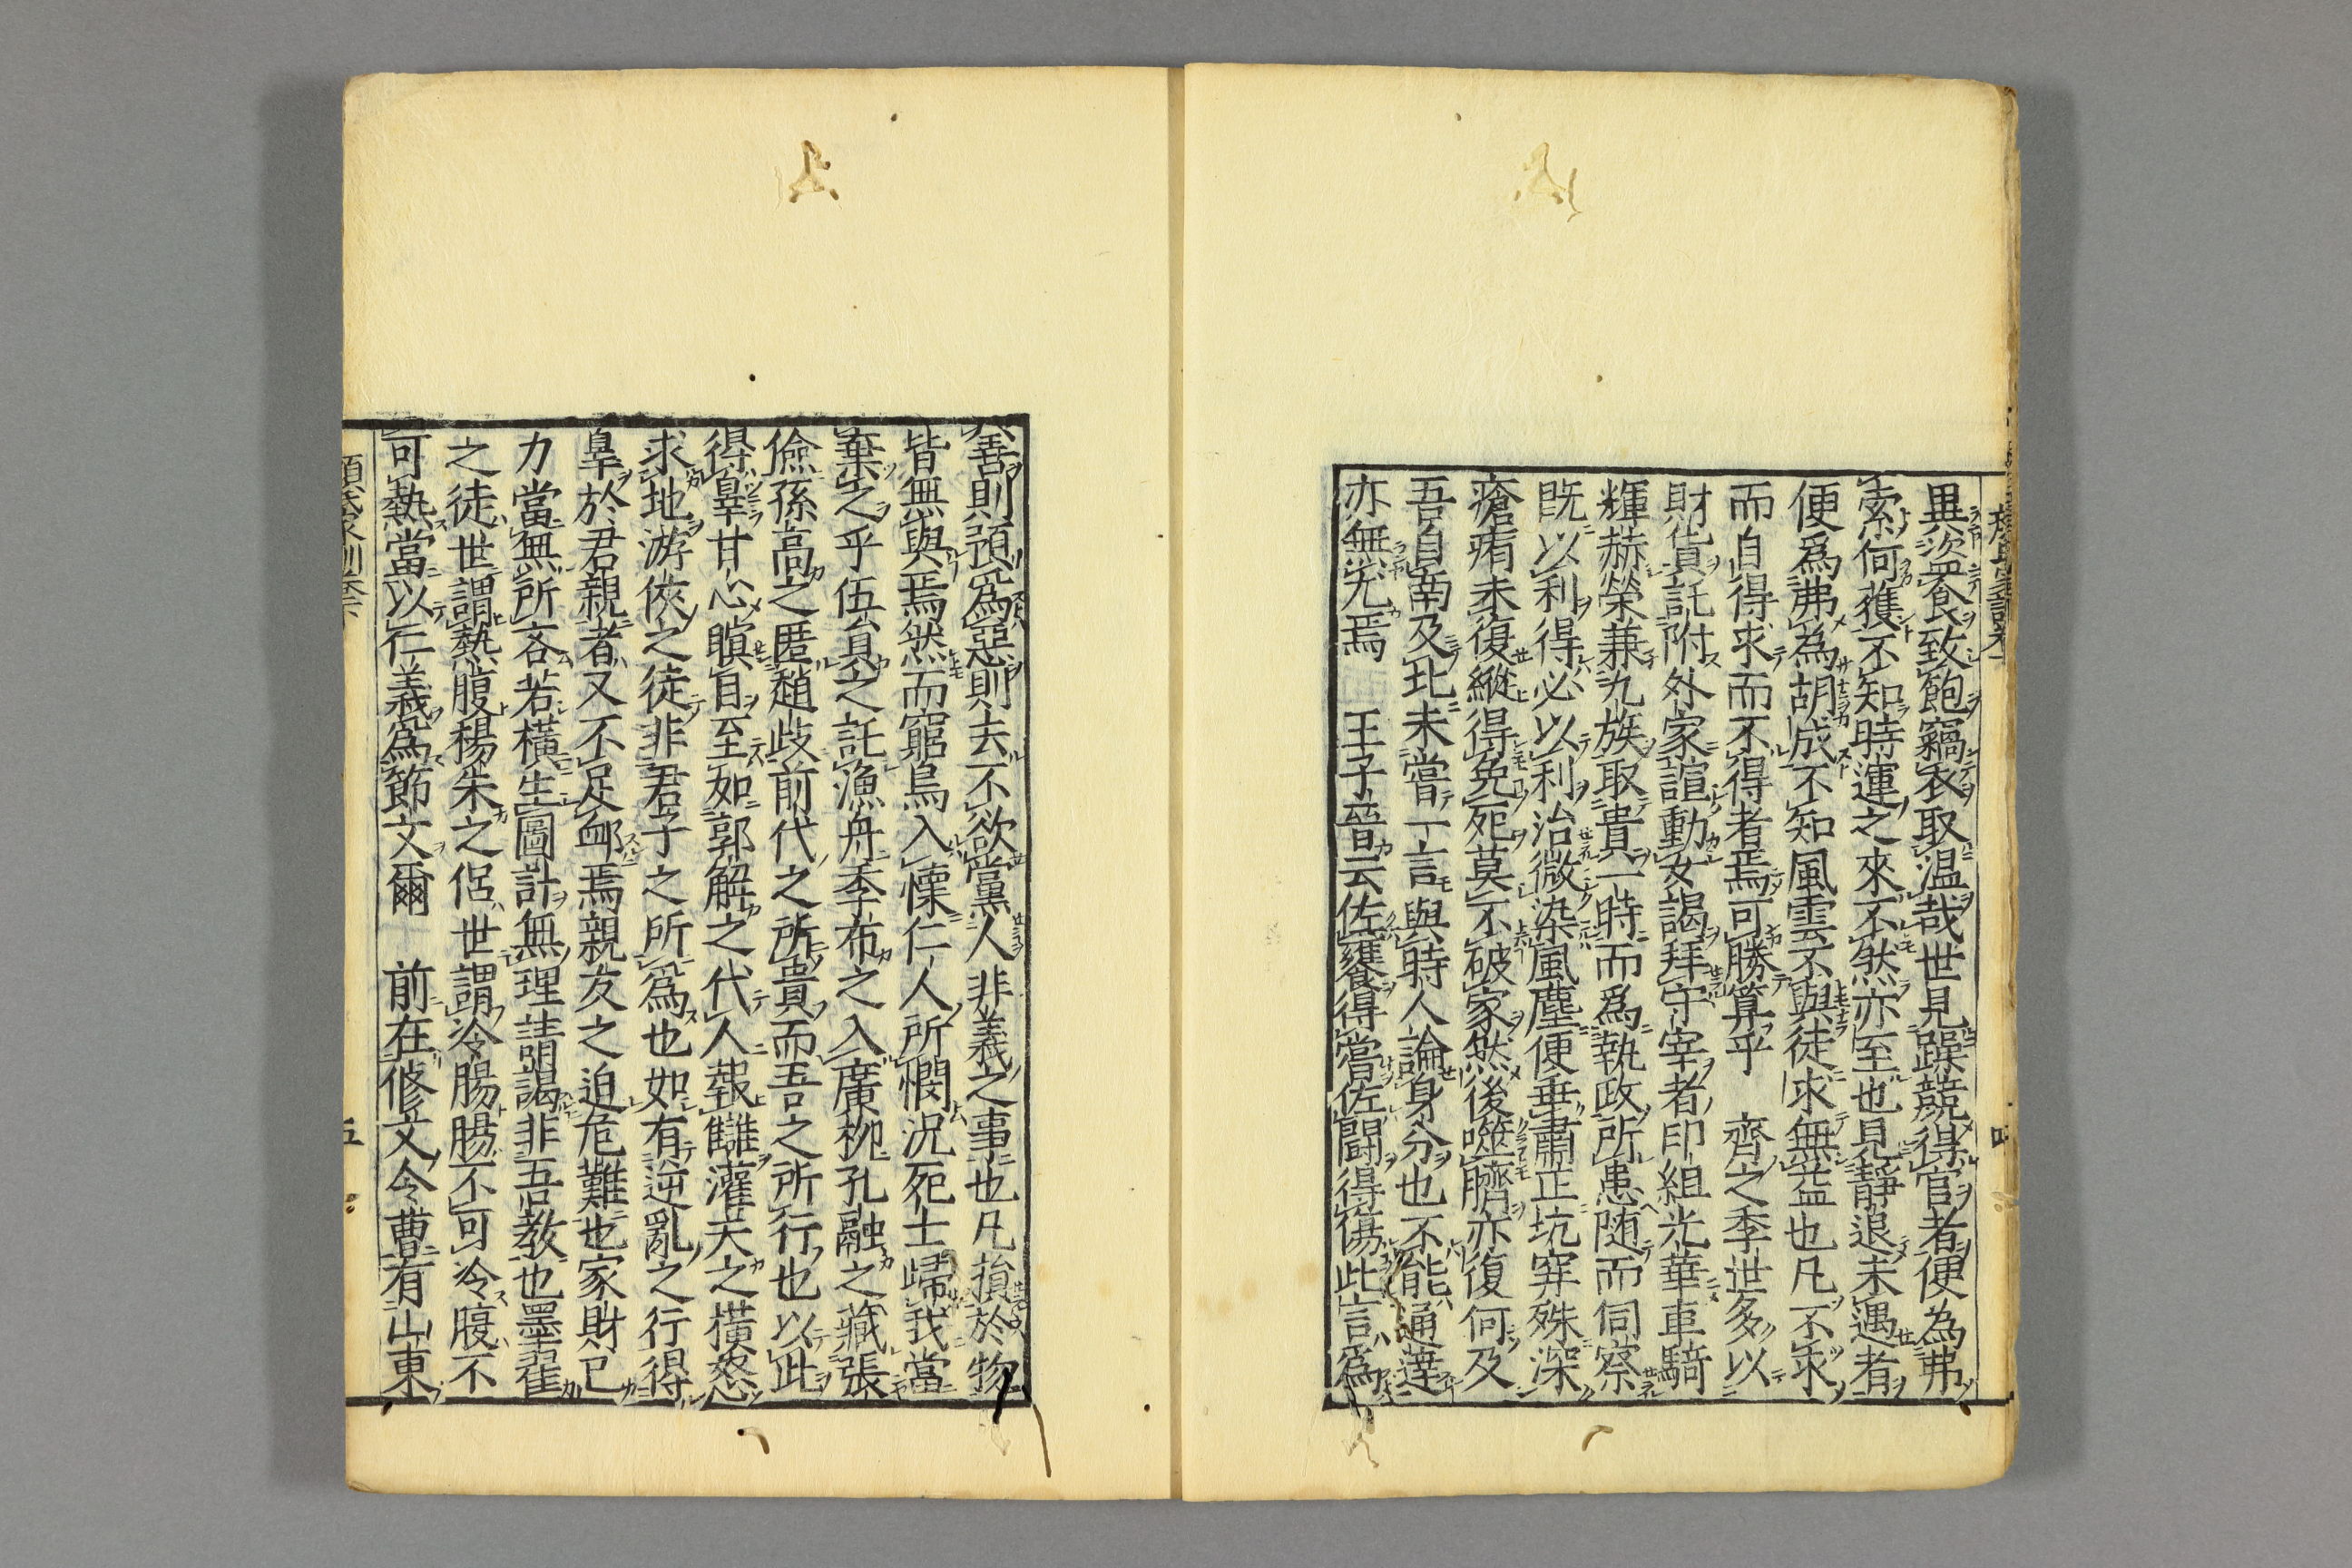 異盜食致飽竊衣取温哉世見躁競得官者便為弗
索何獲不知時運之來不然亦至也見靜退未遇者
便爲弗為胡成不知風雲不與徒求無益也凡不求
而自得求而不得者焉可勝算乎　齊之季世多以
財貨託附外家諠動女謁拜守宰者印組光華車騎
輝赫榮兼九族取貴一時而爲執政所患随而伺察
既以利得必以利治微染風塵便垂肅正坑穽殊深
瘡痏未復縱得免死莫不破家然後噬臍亦復何及
吾自南及北未嘗一言與時人論身分也不能通達
亦無尤焉　王子晉云佐饔得嘗佐鬪得傷此言爲
善則預爲惡則去不欲黨人非義之事也凡損於物
皆無與焉然而窮鳥入懷仁人所憫況死士歸我當
棄之乎伍員之託漁舟季布之入廣柳孔融之藏張
儉孫高之匿趙歧前代之所貴而吾之所行也以此
得辠甘心瞑目至如郭解之代人報讎灌夫之横怒
求地游俠之徒非君子之所爲也如有逆亂之行得
辠於君親者又不足䘏焉親友之迫危難也家財已
力當無所吝若横生圖計無理請謁非吾教也墨翟
之徒世謂熱腹楊朱之侶世謂冷腸腸不可冷腹不
可熱當以仁義爲節文爾　前在修文令曹有山東
顔氏家訓卷下
五